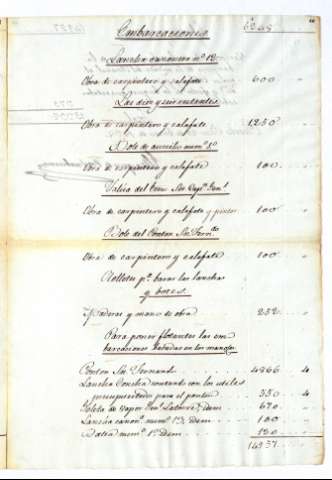 Embarcaciones 6249
Lancha cañonera nº 12
Obra de carpintero y calafate 600
Las diez y seis restantes
Obra de carpintero y calafate 1250
Bote de auxilio num.º 1º
Obra de carpintero y calafate 100
Falúa del Cap.ⁿ Gen.l
Obra de carpintero y calafate y pintor 100
Bote del Ponton Sn. Fern.do
Obra de carpintero y calafate 100
p.ª barar las lanchas
y botes.
Maderas y mano de obra 252
Para poner flotantes las em
barcaciones baradas en los mangles
Ponton Sn. Fernando 4866 4
Lancha Concha contando con los utiles
presupuestado para el ponton 350 4
de vapor Gen.l Laborde, idem 670
Lancha cañon.ª num.º 13, idem 100
num.º 1º idem 150
14937